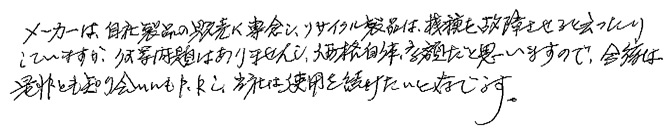 メーカーは、自社製品の販売に専念し、リサイクル製品は、機種を故障させると云ったり
していますが、何等問題はありませんし、価格自体高額だと思いますので、今後は
是非とも知り合いにもP.Rし、当社は使用を続けたいと存じます。